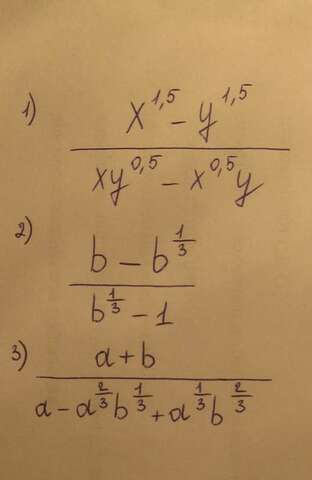 1) x^{1,5} - y^{1,5}
xy^{0,5} - x^{0,5}y
2) b - b^{1/3}
b^{1/3} - 1
3) a + b
a - a^{2/3}b^{1/3} + a^{1/3}b^{2/3}